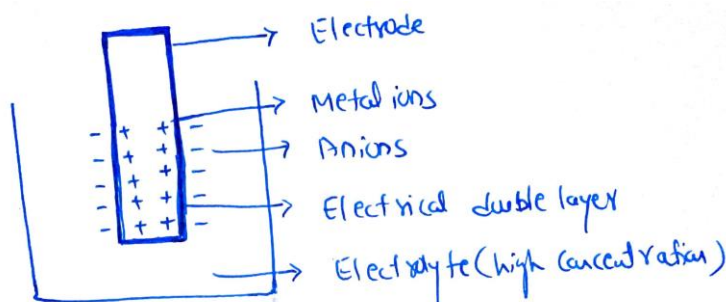 Electrode
Metal ions
Anions
Electrical double layer
Electrolyte (high concentration)